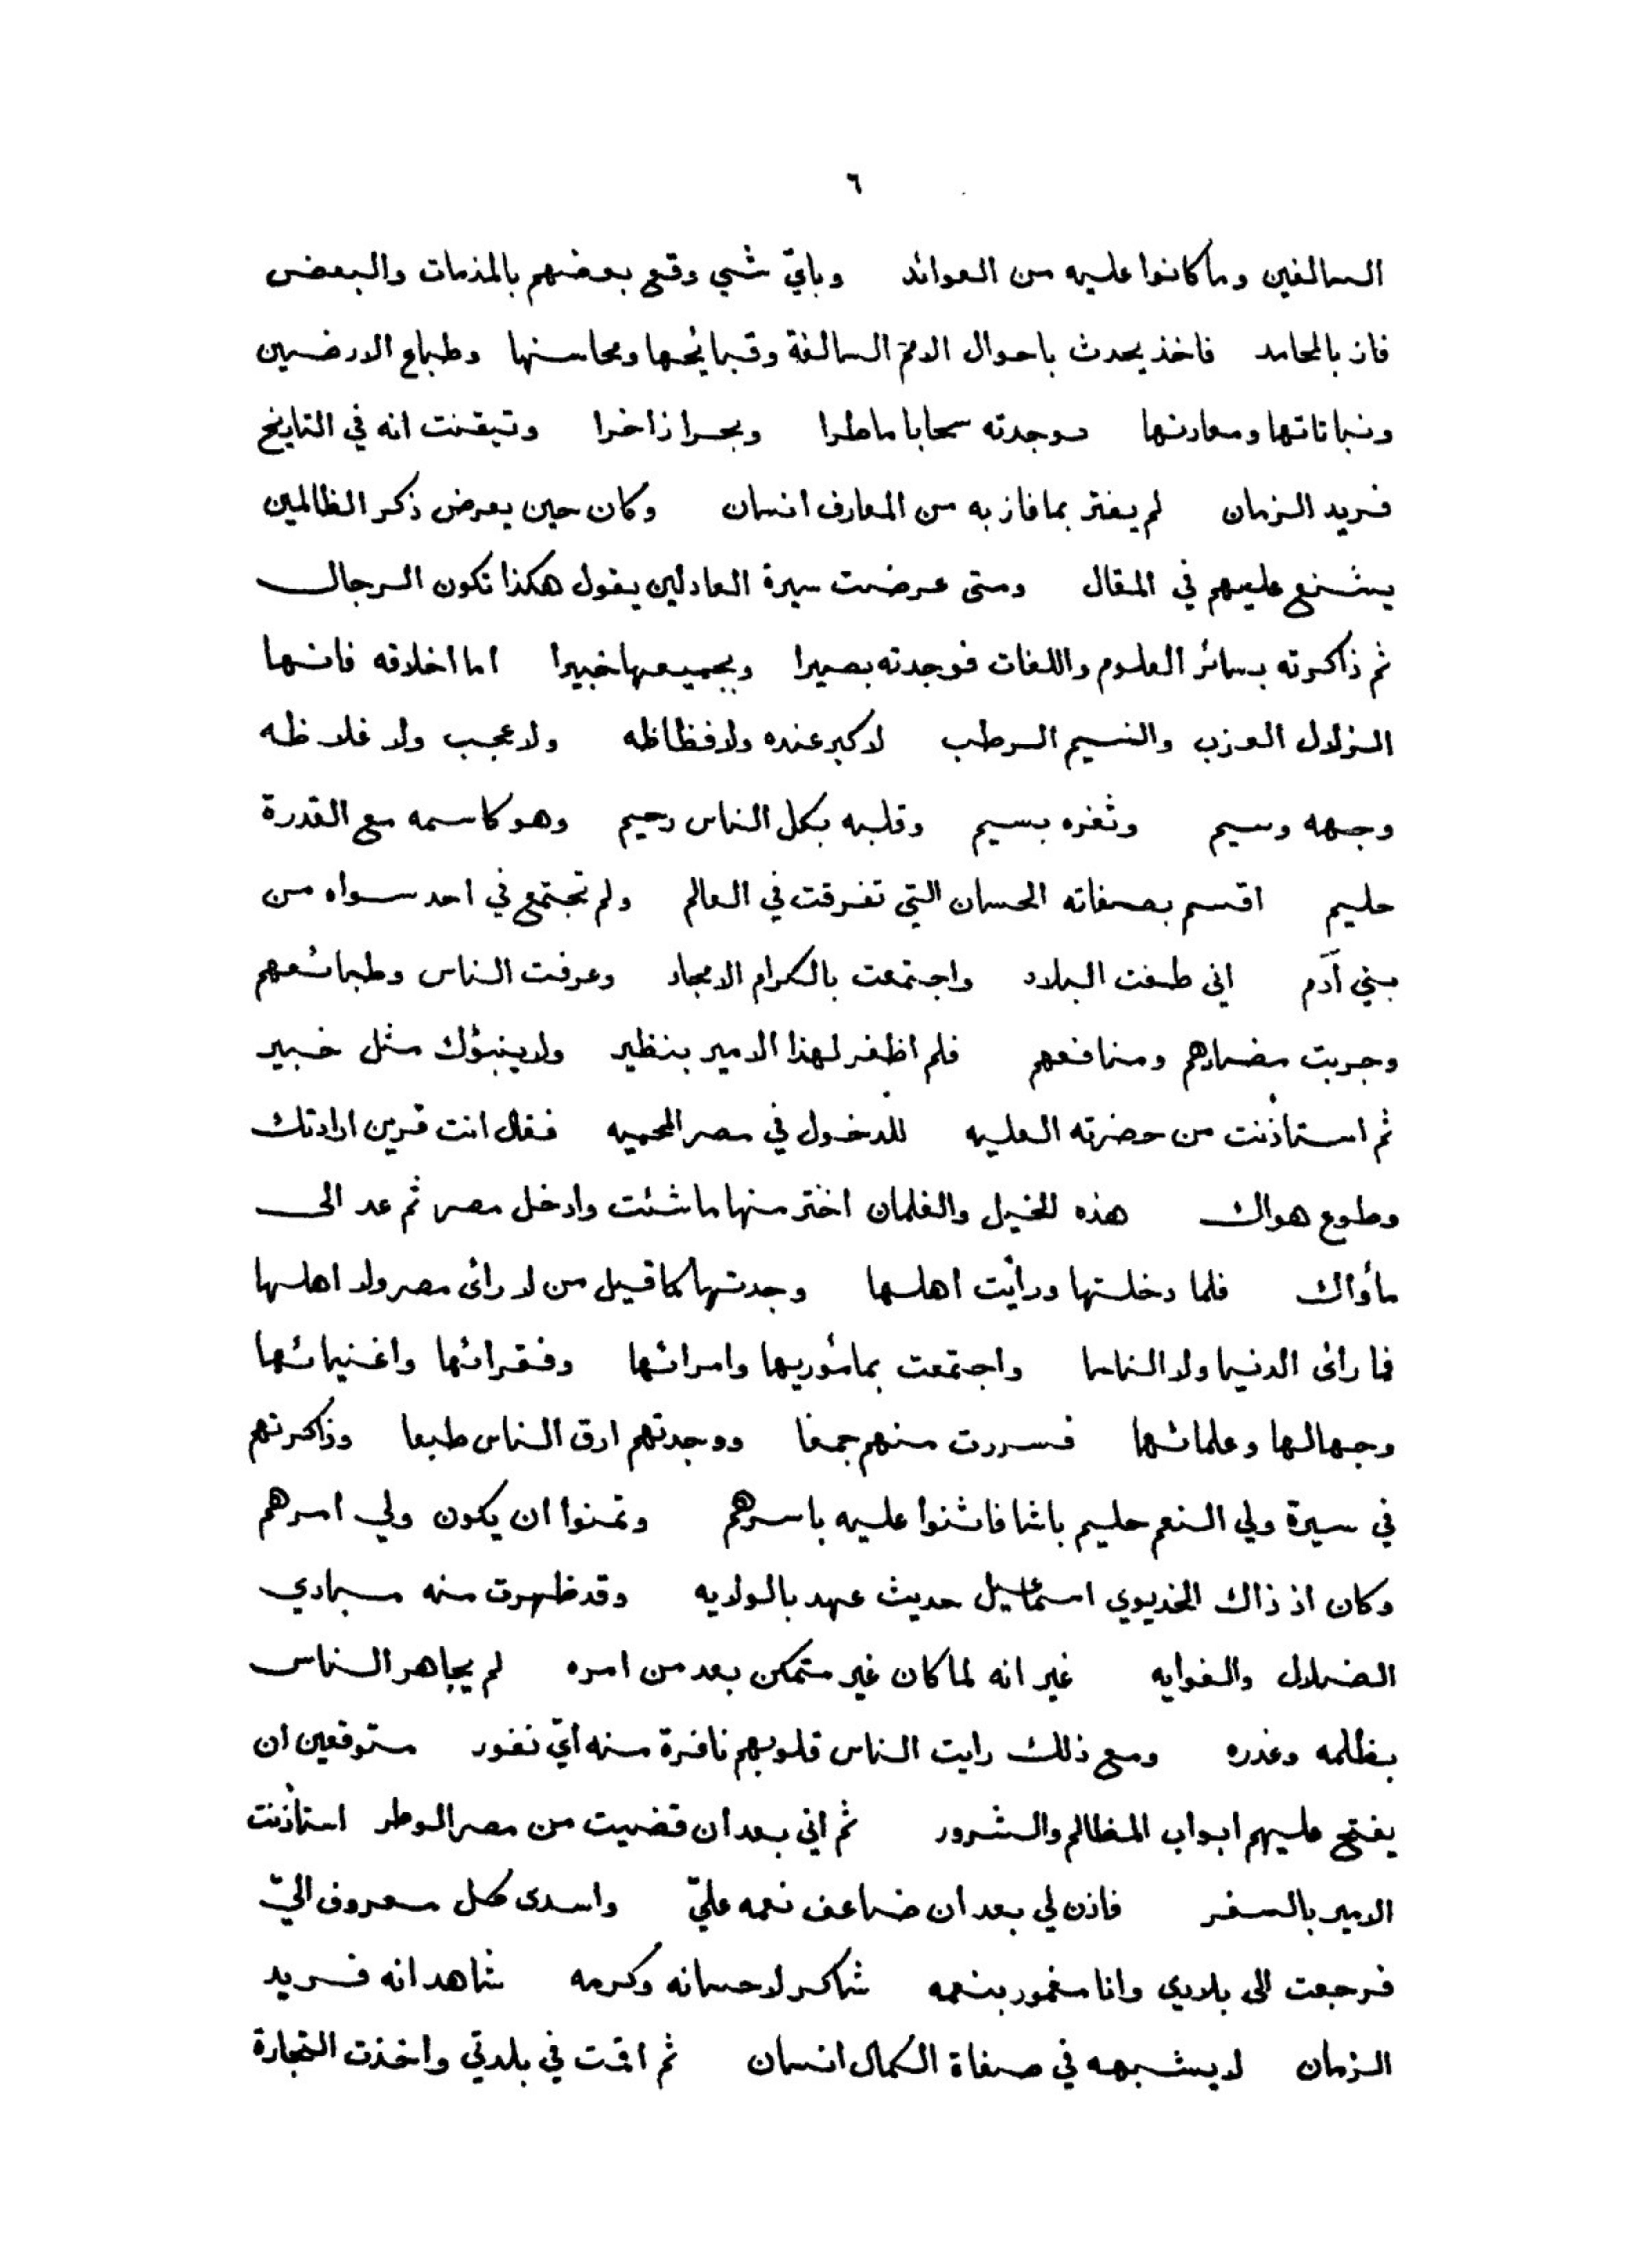 ٦
السالفين وما كانوا عليه من العوائد وباي شي وقع بعضهم بالمذمات والبعض
فاز بالمحامد فاخذ يحدث باحوال الامم السالفة وقبائحها ومحاسنها وطباع الارضين
ونباتاتها ومعادنها فوجدته سحابا ماطرا وبحرا زاخرا وتيقنت انه في التاريخ
فريد الزمان لم يفتر بما فاز به من المعارف انسان وكان حين يعرض ذكر الظالمين
يشنع عليهم في المقال ومتى عرضت سيرة العادلين يقول هكذا تكون الرجال
ثم ذاكرته بسائر العلوم واللغات فوجدته بصيرا وبجميعها خبيرا اما اخلاقه فانها
الزلال العزب والنسيم الرطب لا كبر عنده ولا فظاظه ولا عجب ولا غلاظه
وجهه وسيم وثغره بسيم وقلبه بكل الناس رحيم وهو كاسمه مع القدرة
حليم اقسم بصفاته الحسان التي تفرقت في العالم ولم تجتمع في احد سواه من
بني آدم اني طفت البلاد واجتمعت بالكرام الامجاد وعرفت الناس وطبائعهم
وجربت مضارهم ومنافعهم فلم اظفر لهذا الامير بنظير ولا ينبؤك مثل خبير
ثم استأذنت من حضرته العليه للدخول في مصر المحميه فقال انت قرين ارادتك
وطوع هواك هذه الخيل والغلمان اختر منها ما شئت وادخل مصر ثم عد الى
مأواك فلما دخلتها ورأيت اهلها وجدتها كما قيل من لا رائ مصر ولا اهلها
فما رائ الدنيا ولا الناسا واجتمعت بمأموريها وامرائها وفقرائها واغنيائها
وجهالها وعلمائها فسررت منهم جمعا ووجدتهم ارق الناس طبعا وذاكرتهم
في سيرة ولي النعم حليم باشا فاثنوا عليه باسرهم وتمنوا ان يكون ولي امرهم
وكان اذ ذاك الخديوي اسماعيل حديث عهد بالولايه وقد ظهرت منه مبادي
الضلال والغوايه غير انه لما كان غير متمكن بعد من امره لم يجاهر الناس
بظلمه وغدره ومع ذلك رايت الناس قلوبهم نافرة منه اي نفور متوقعين ان
يفتح عليهم ابواب المظالم والشرور ثم اني بعد ان قضيت من مصر الوطر استأذنت
الامير بالسفر فاذن لي بعد ان ضاعف نعمه عليّ واسدى كل معروف اليّ
فرجعت الى بلادي وانا مغمور بنعمه شاكر لاحسانه وكرمه شاهد انه فريد
الزمان لا يشبهه في صفاة الكمال انسان ثم اقمت في بلدتي واتخذت التجارة